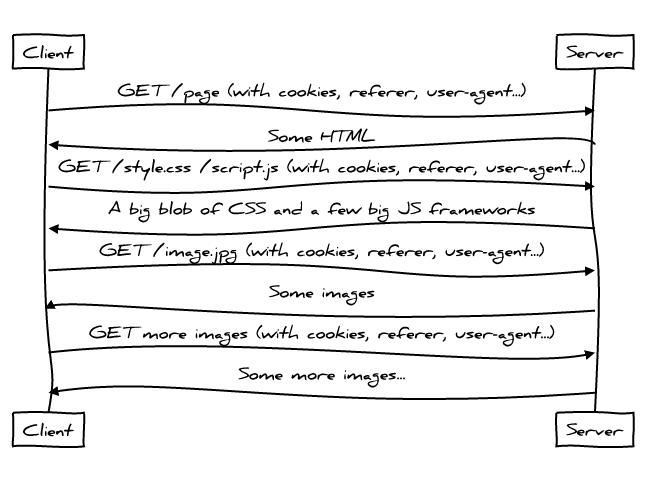 Client
Server
GET /page (with cookies, referer, user-agent...)
Some HTML
GET /style.css /script.js (with cookies, referer, user-agent...)
A big blob of CSS and a few big JS frameworks
GET /image.jpg (with cookies, referer, user-agent...)
Some images
GET more images (with cookies, referer, user-agent...)
Some more images...
Client
Server